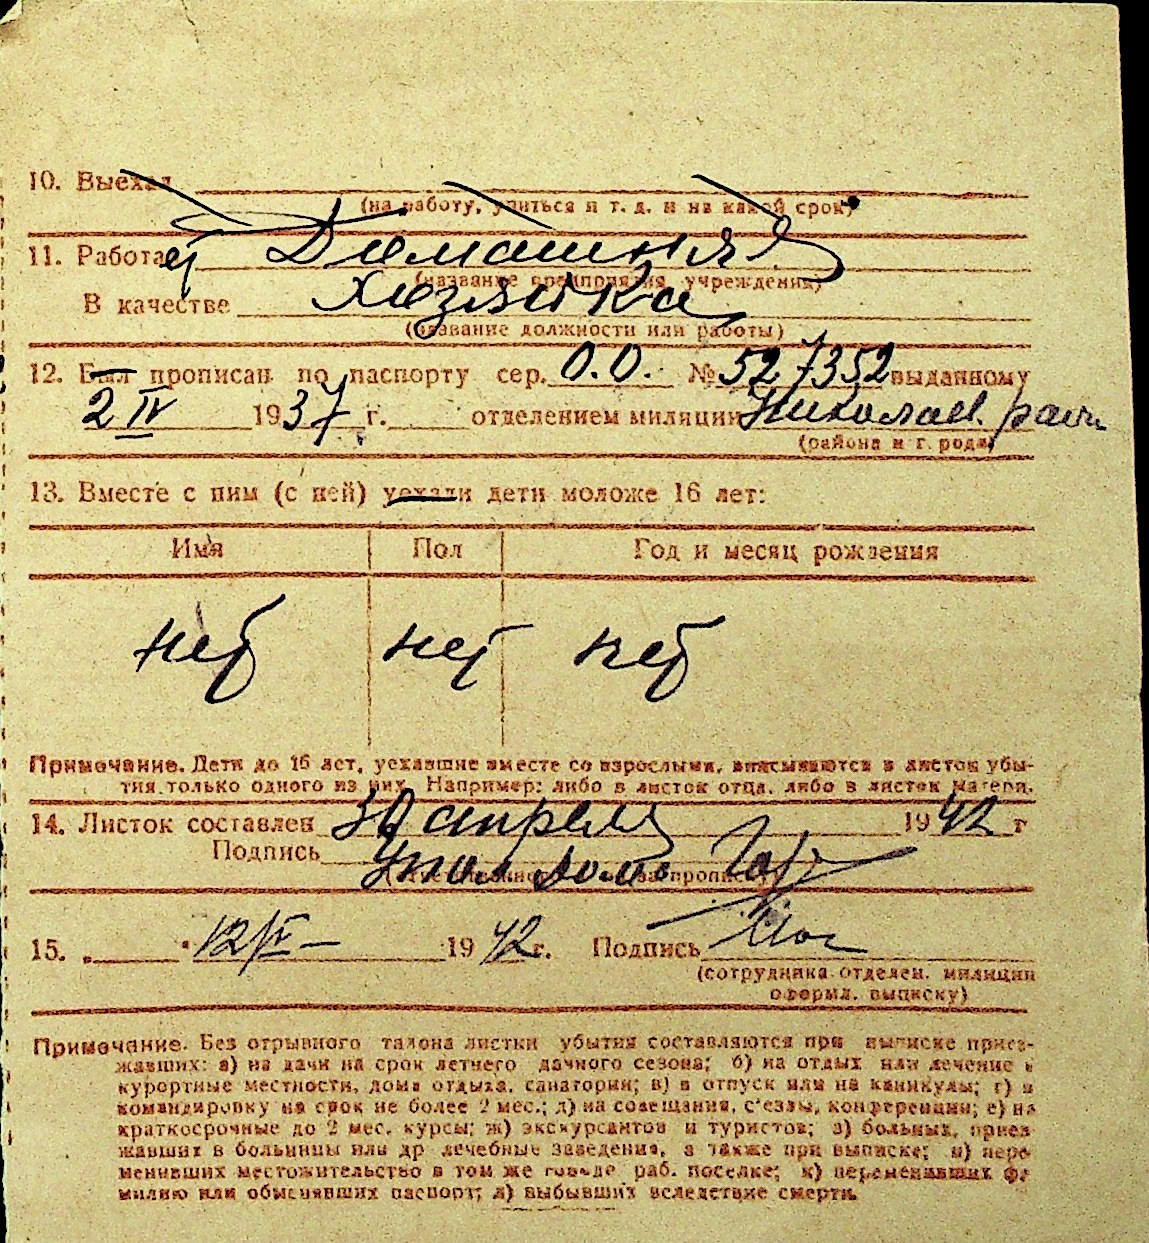 10. Выехал
(на работу, учиться и т. д. и на какой срок)
11. Работает Домашняя
(название предприятия, учреждения)
В качестве Хозяйка
(название должности или работы)
12. Был прописан по паспорту сер. О.О. № 527352 выданному
2 IV 1937 г. отделением милиции Николаев. район
(района и города)
13. Вместе с ним (с ней) уехали дети моложе 16 лет:
Имя Пол Год и месяц рождения
нет нет нет
Примечание. Дети до 16 лет, уехавшие вместе со взрослыми, вписываются в листок убы-
тия только одного из них. Например: либо в листок отца, либо в листок матери.
14. Листок составлен 30 апреля 1942 г
Подпись
15. „ " 12/V – 1942 г. Подпись
(сотрудника отделен. милиции
оформл. выписку)
Примечание. Без отрывного талона листки убытия составляются при выписке приез-
жавших: а) на дачи на срок летнего дачного сезона; б) на отдых или лечение в
курортные местности, дома отдыха, санатории; в) в отпуск или на каникулы; г) в
командировку на срок не более 2 мес.; д) на совещания, с'езды, конференции; е) на
краткосрочные до 2 мес. курсы; ж) экскурсантов и туристов; з) больных, приез-
жавших в больницы или др лечебные заведения, а также при выписке; и) пере-
менивших местожительство в том же городе раб. поселке; к) переменивших фа
милию или обменявших паспорт; л) выбывших вследствие смерти.